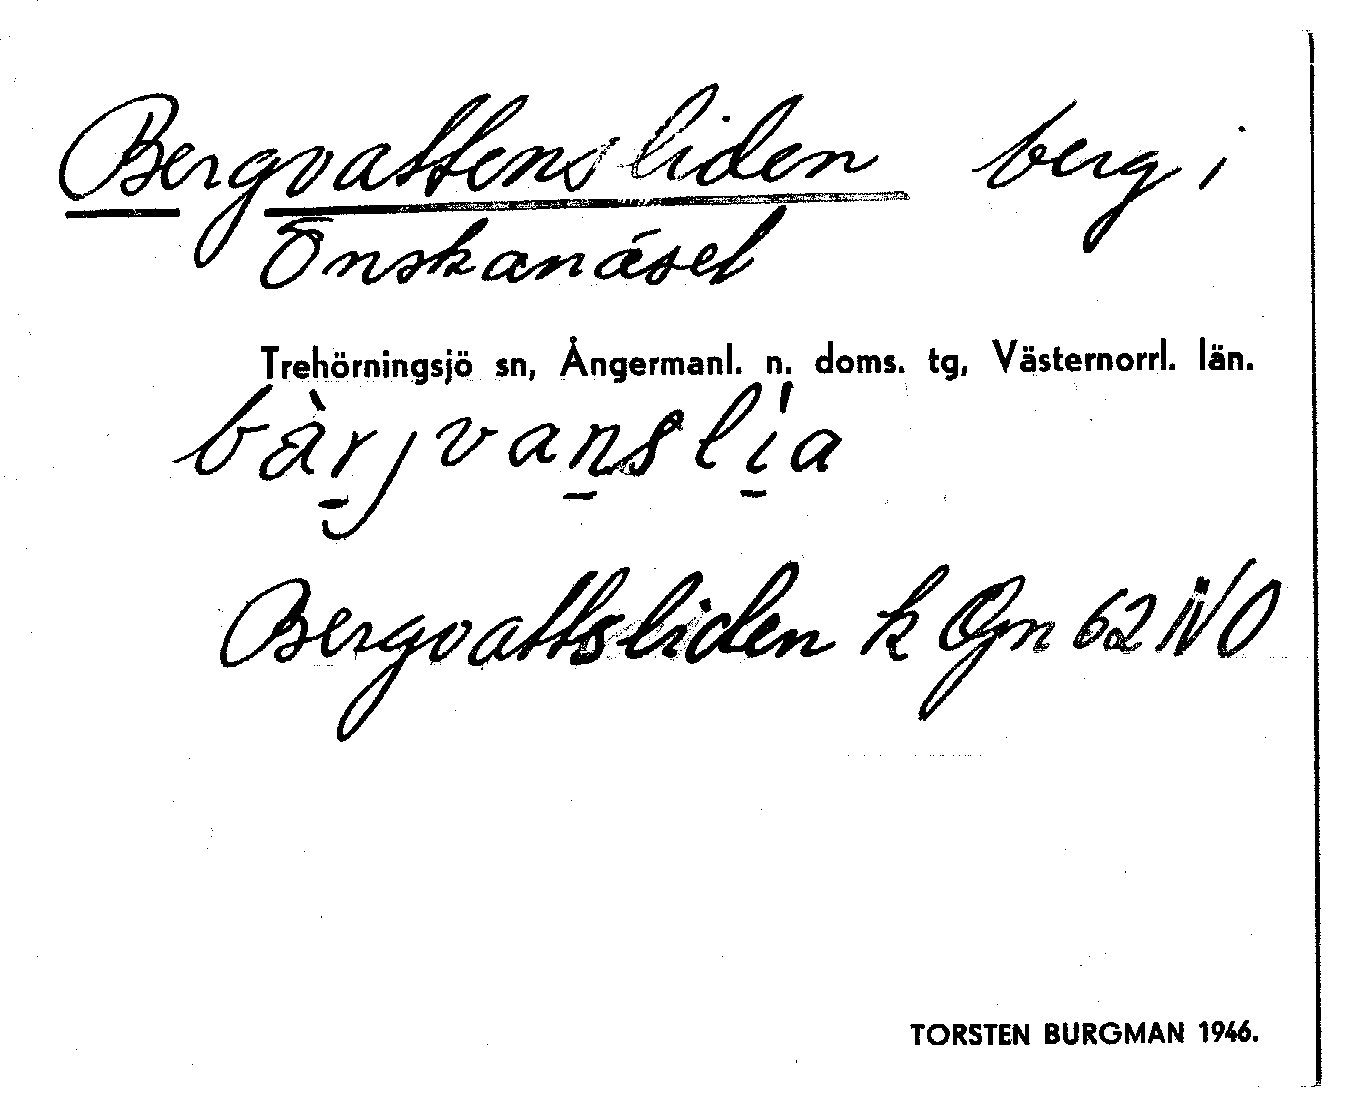 Bergvattensliden berg i
Önskanäset
Trehörningsjö sn, Ångermanl. n. doms. tg, Västernorrl. län.
bàrjvanslia
Bergvattsliden k Ggn 62 NO
TORSTEN BURGMAN 1946.